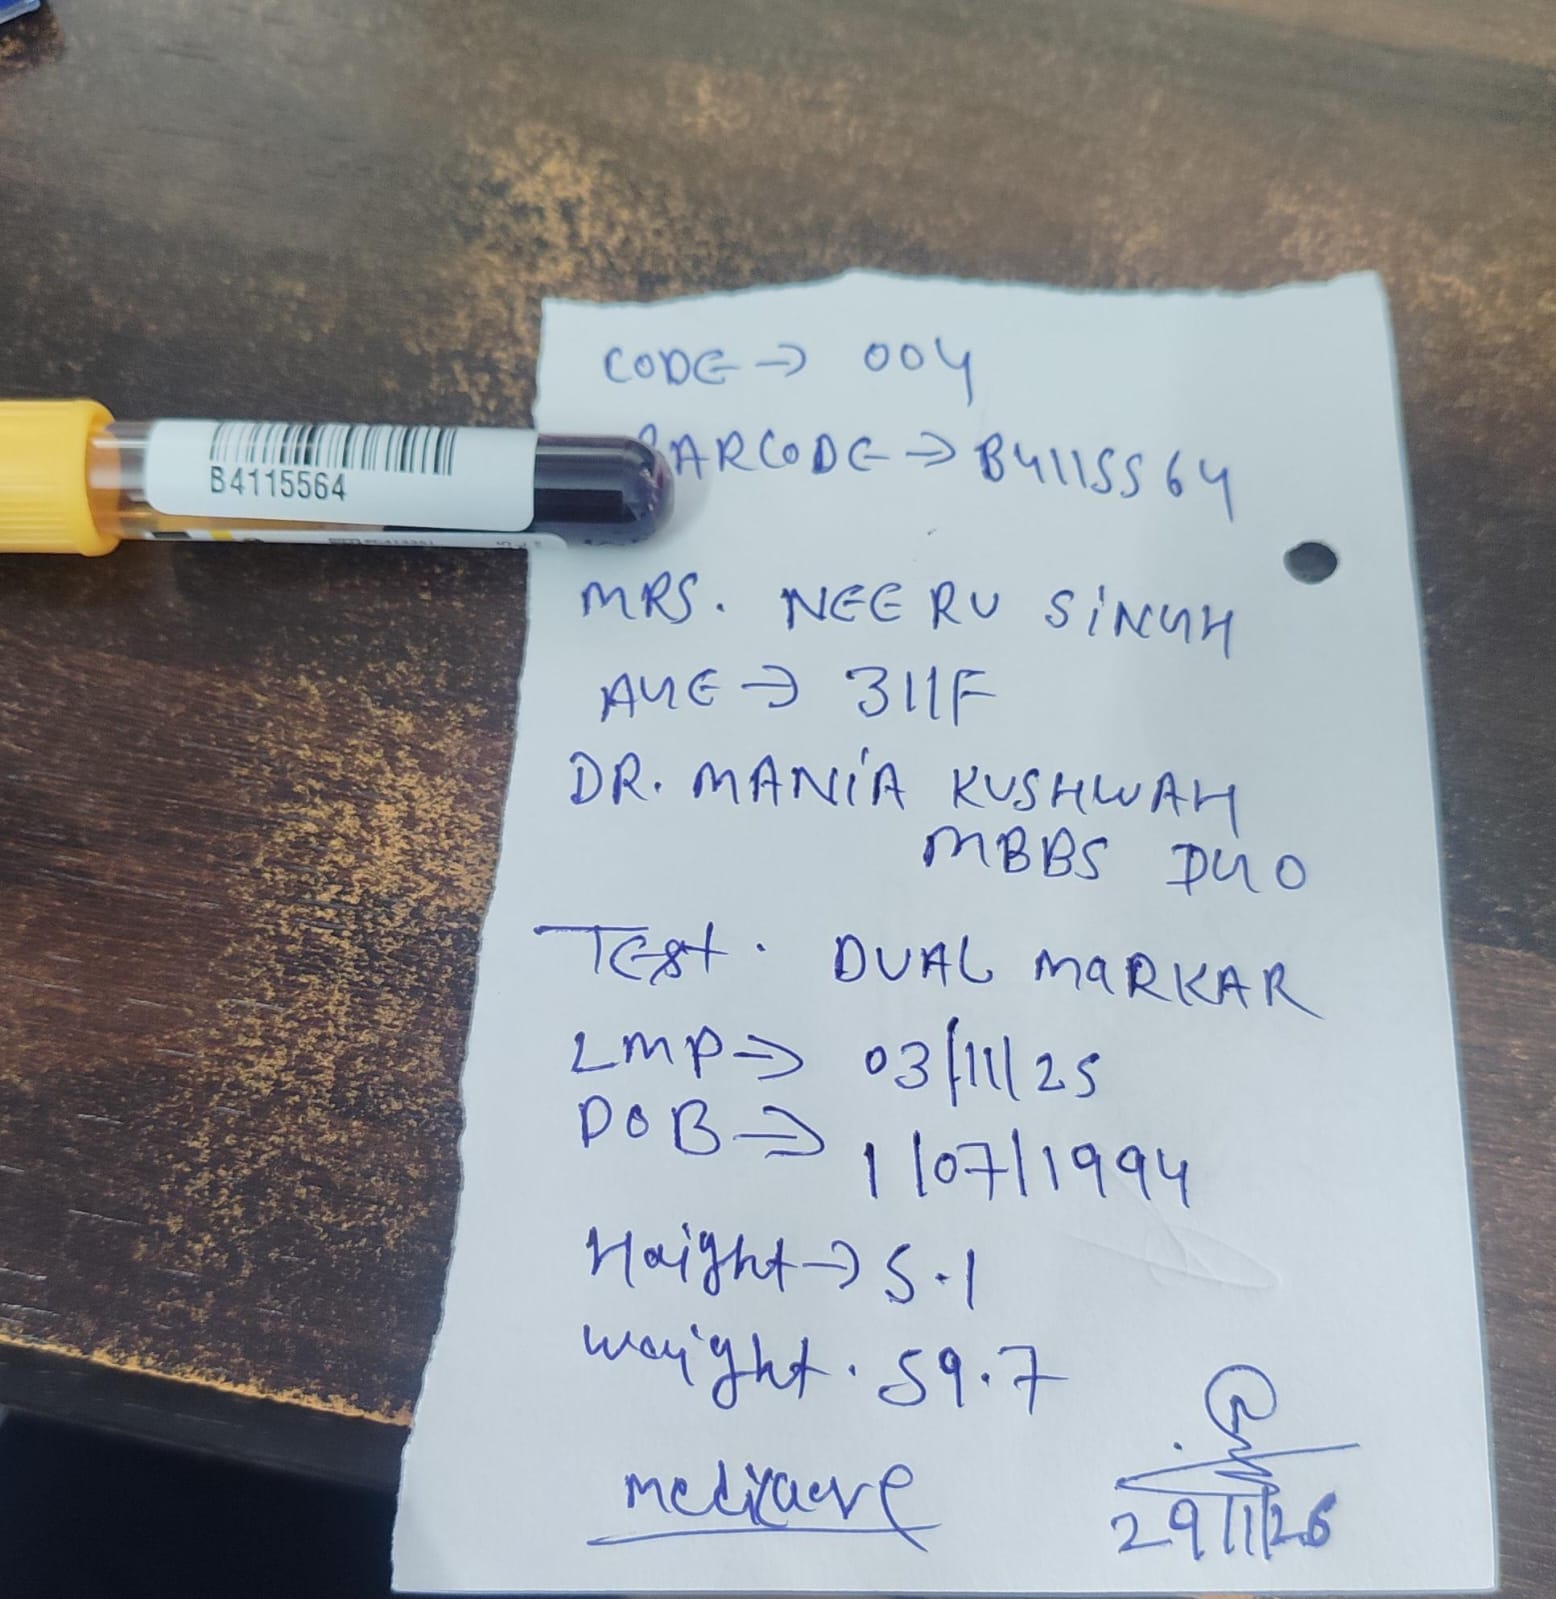 CODE → 004
BARCODE → B4115564
B4115564
MRS. NEERU SINGH
AGE → 31/F
DR. MANIA KUSHWAH
MBBS DGO
Test . DUAL MARKAR
LMP → 03/11/25
DOB → 1/07/1994
Haight → 5.1
Waight . 59.7
medicare
29/1/26